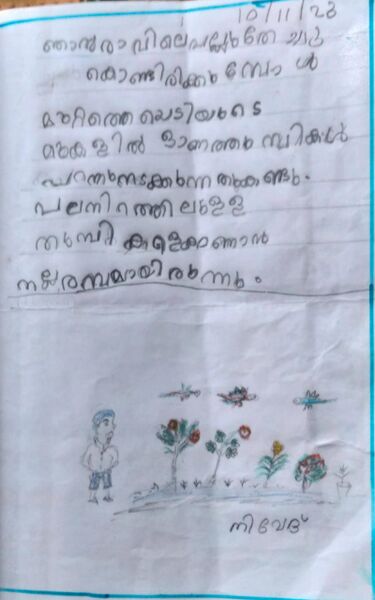 10/11/23
ഞാൻ രാവിലെ പല്ലു തേച്ചു
കൊണ്ടിരിക്കു മ്പോ ൾ
മുറ്റത്തെ ചെടിയുടെ
മുകളിൽ ഓണത്തു മ്പികൾ
പറന്നുനടക്കുന്ന തുകണ്ടു.
പലനിറത്തിലുള്ള
തുമ്പി കളെകാണാൻ
നല്ലരസമായിരുന്നു.
നിവേദ്